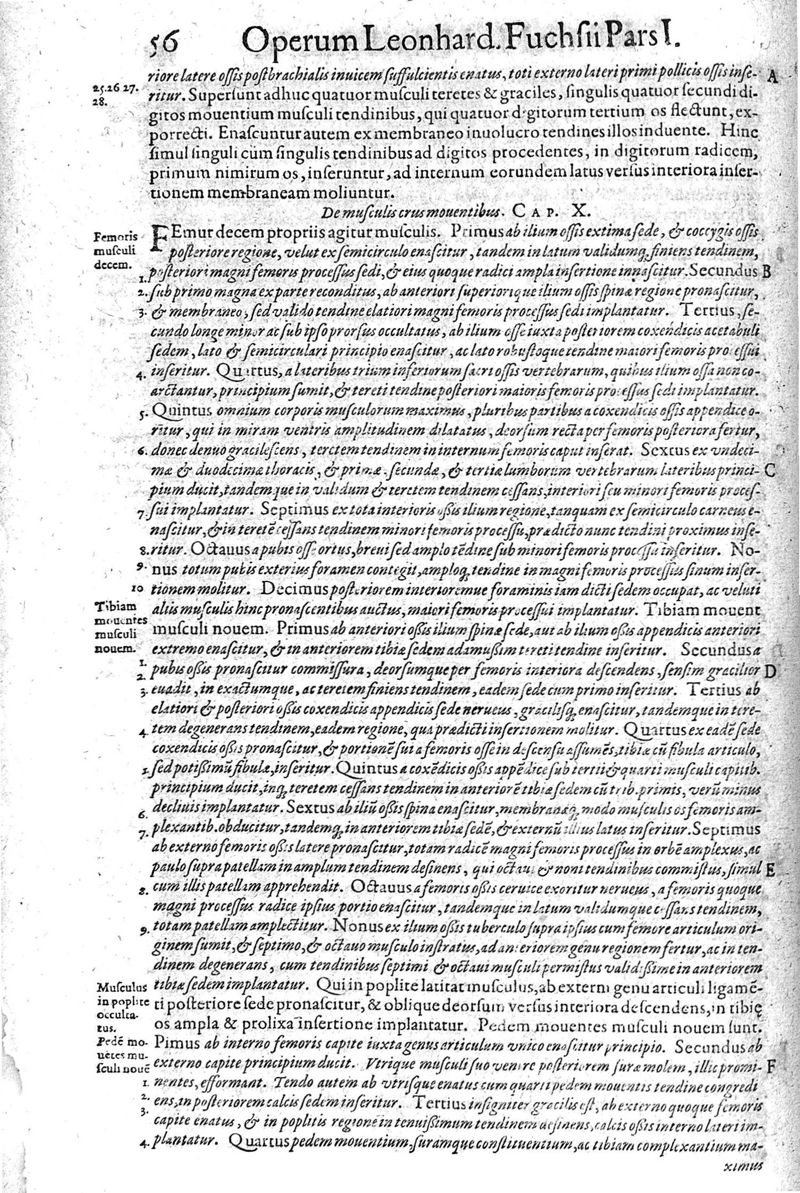 56 Operum Leonhard. Fuchsii Pars I.
riore latere ossis postbrachialis inuicem suffulcientis enatus, toti externo lateri primi pollicis ossis inse- A
25.26 27. 28.
ritur. Supersunt adhuc quatuor musculi teretes & graciles, singulis quatuor secundi di-
gitos mouentium musculi tendinibus, qui quatuor digitorum tertium os flectunt, ex-
porrecti. Enascuntur autem ex membraneo inuolucro tendines illos induente. Hinc
simul singuli cum singulis tendinibus ad digitos procedentes, in digitorum radicem,
primum nimirum os, inseruntur, ad internum eorundem latus versus interiora inser-
tionem membraneam moliuntur.
De musculis crus mouentibus. CAP. X.
Femoris musculi decem.
FEmur decem propriis agitur musculis. Primus ab ilium ossis extima sede, & coccygis ossis
posteriore regione, velut ex semicirculo enascitur, tandem in latum validumq; finiens tendinem,
1. posteriori magni femoris processus sedi, & eius quoque radici ampla insertione innascitur. Secundus B
2. sub primo magna ex parte reconditus, ab anteriori superiorique ilium ossis spinæ regione pronascitur,
3. & membraneo, sed valido tendine elatiori magni femoris processus sedi implantatur. Tertius, se-
cundo longe minor ac sub ipso prorsus occultatus, ab ilium osse iuxta posteriorem coxendicis acetabuli
sedem, lato & semicirculari principio enascitur, ac lato robustoque tendine maiori femoris processui
4. inseritur. Quartus, a lateribus trium inferiorum sacri ossis vertebrarum, quibus ilium ossa non co-
arctantur, principium sumit, & tereti tendine posteriori maioris femoris processus sedi implantatur.
5. Quintus omnium corporis musculorum maximus, pluribus partibus a coxendicis ossis appendice o-
ritur, qui in miram ventris amplitudinem dilatatus, deorsum recta per femoris posteriora fertur,
6. donec denuo gracilescens, teretem tendinem in internum femoris caput inserat. Sextus ex vndeci-
mæ & duodecimæ thoracis, & primæ, secundæ, & tertiæ lumborum vertebrarum lateribus princi- C
pium ducit, tandemque in validum & teretem tendinem cessans, interiori seu minori femoris proces-
7. sui implantatur. Septimus ex tota interioris oßis ilium regione, tanquam ex semicirculo carneus e-
nascitur, & in teretē cessans tendinem minori femoris processui, prædicto nunc tendini proximus inse-
8. ritur. Octauus a pubis osse ortus, breui sed amplo tēdine sub minori femoris processu inseritur. No-
9. nus totum pubis exterius foramen contegit, amploq; tendine in magni femoris processus sinum inser-
10 tionem molitur. Decimus posteriorem interioremue foraminis iam dicti sedem occupat, ac veluti
Tibiam mouentes musculi nouem.
aliis musculis hinc pronascentibus auctus, maiori femoris processui implantatur. Tibiam mouent
musculi nouem. Primus ab anteriori oßis ilium spinæ sede, aut ab ilium oßis appendicis anteriori
extremo enascitur, & in anteriorem tibiæ sedem adamußim tereti tendine inseritur. Secundus a
1.
2. pubis oßis pronascitur commissura, deorsumque per femoris interiora descendens, sensim gracilior D
3. euadit, in exactumque, ac teretem finiens tendinem, eadem sede cum primo inseritur. Tertius ab
elatiori & posteriori oßis coxendicis appendicis sede nerueus, gracilisq; enascitur, tandemque in tere-
4. tem degenerans tendinem, eadem regione, qua prædicti insertionem molitur. Quartus ex eadē sede
coxendicis oßis pronascitur, & portionē sui a femoris osse in descensu assumēs, tibiæ cū fibula articulo,
5. sed potißimū fibulæ, inseritur. Quintus a coxēdicis oßis appēdice sub tertii & quarti musculi capitib.
principium ducit, inq; teretem cessans tendinem in anteriorē tibiæ sedem cū trib. primis, verū minus
decliuis implantatur. Sextus ab iliū oßis spina enascitur, membranæq; modo musculis os femoris am-
6.
7. plexantib. obducitur, tandemq; in anteriorem tibiæ sedē, & externū illius latus inseritur. Septimus
ab externo femoris oßis latere pronascitur, totam radicē magni femoris processus in orbē amplexus, ac
paulo supra patellam in amplum tendinem desinens, qui octaui & noni tendinibus commistus, simul E
8. cum illis patellam apprehendit. Octauus a femoris oßis ceruice exoritur nerueus, a femoris quoque
magni processus radice ipsius portio enascitur, tandemque in latum validumque cessans tendinem,
9. totam patellam amplectitur. Nonus ex ilium oßis tuberculo supra ipsius cum femore articulum ori-
ginem sumit, & septimo, & octauo musculo instratus, ad anteriorem genu regionem fertur, ac in ten-
dinem degenerans, cum tendinibus septimi & octaui musculi permistus validißime in anteriorem
Musculus in poplite occulta-tus.
tibiæ sedem implantatur. Qui in poplite latitat musculus, ab externi genu articuli ligamē-
ti posteriore sede pronascitur, & oblique deorsum versus interiora descendens, in tibię
os ampla & prolixa insertione implantatur. Pedem mouentes musculi nouem sunt.
Pedē mo-uētes mu-sculi nouē
Pimus ab interno femoris capite iuxta genus articulum vnico enascitur principio. Secundus ab
externo capite principium ducit. Vtrique musculi suo ventre posteriorem suræ molem, illic promi- F
1. nentes, efformant. Tendo autem ab vtrisque enatus cum quarti pedem mouentis tendine congredi
2. ens, in posteriorem calcis sedem inseritur. Tertius insigniter gracilis est, ab externo quoque femoris
3.
capite enatus, & in poplitis regione in tenuißimum tendinem desinens, calcis oßis interno lateri im-
4. plantatur. Quartus pedem mouentium, suramque constituentium, ac tibiam complexantium ma-
ximus